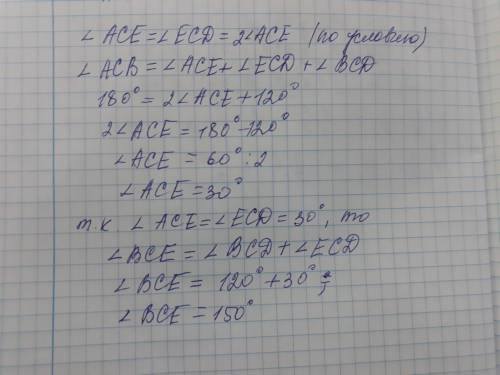 ∠ACE = ∠ECD = 2∠ACE (по условию)
∠ACB = ∠ACE + ∠ECD + ∠BCD
180° = 2∠ACE + 120°
2∠ACE = 180° - 120°
∠ACE = 60° : 2
∠ACE = 30°
т.к ∠ACE = ∠ECD = 30°, то
∠BCE = ∠BCD + ∠ECD
∠BCE = 120° + 30°
∠BCE = 150°